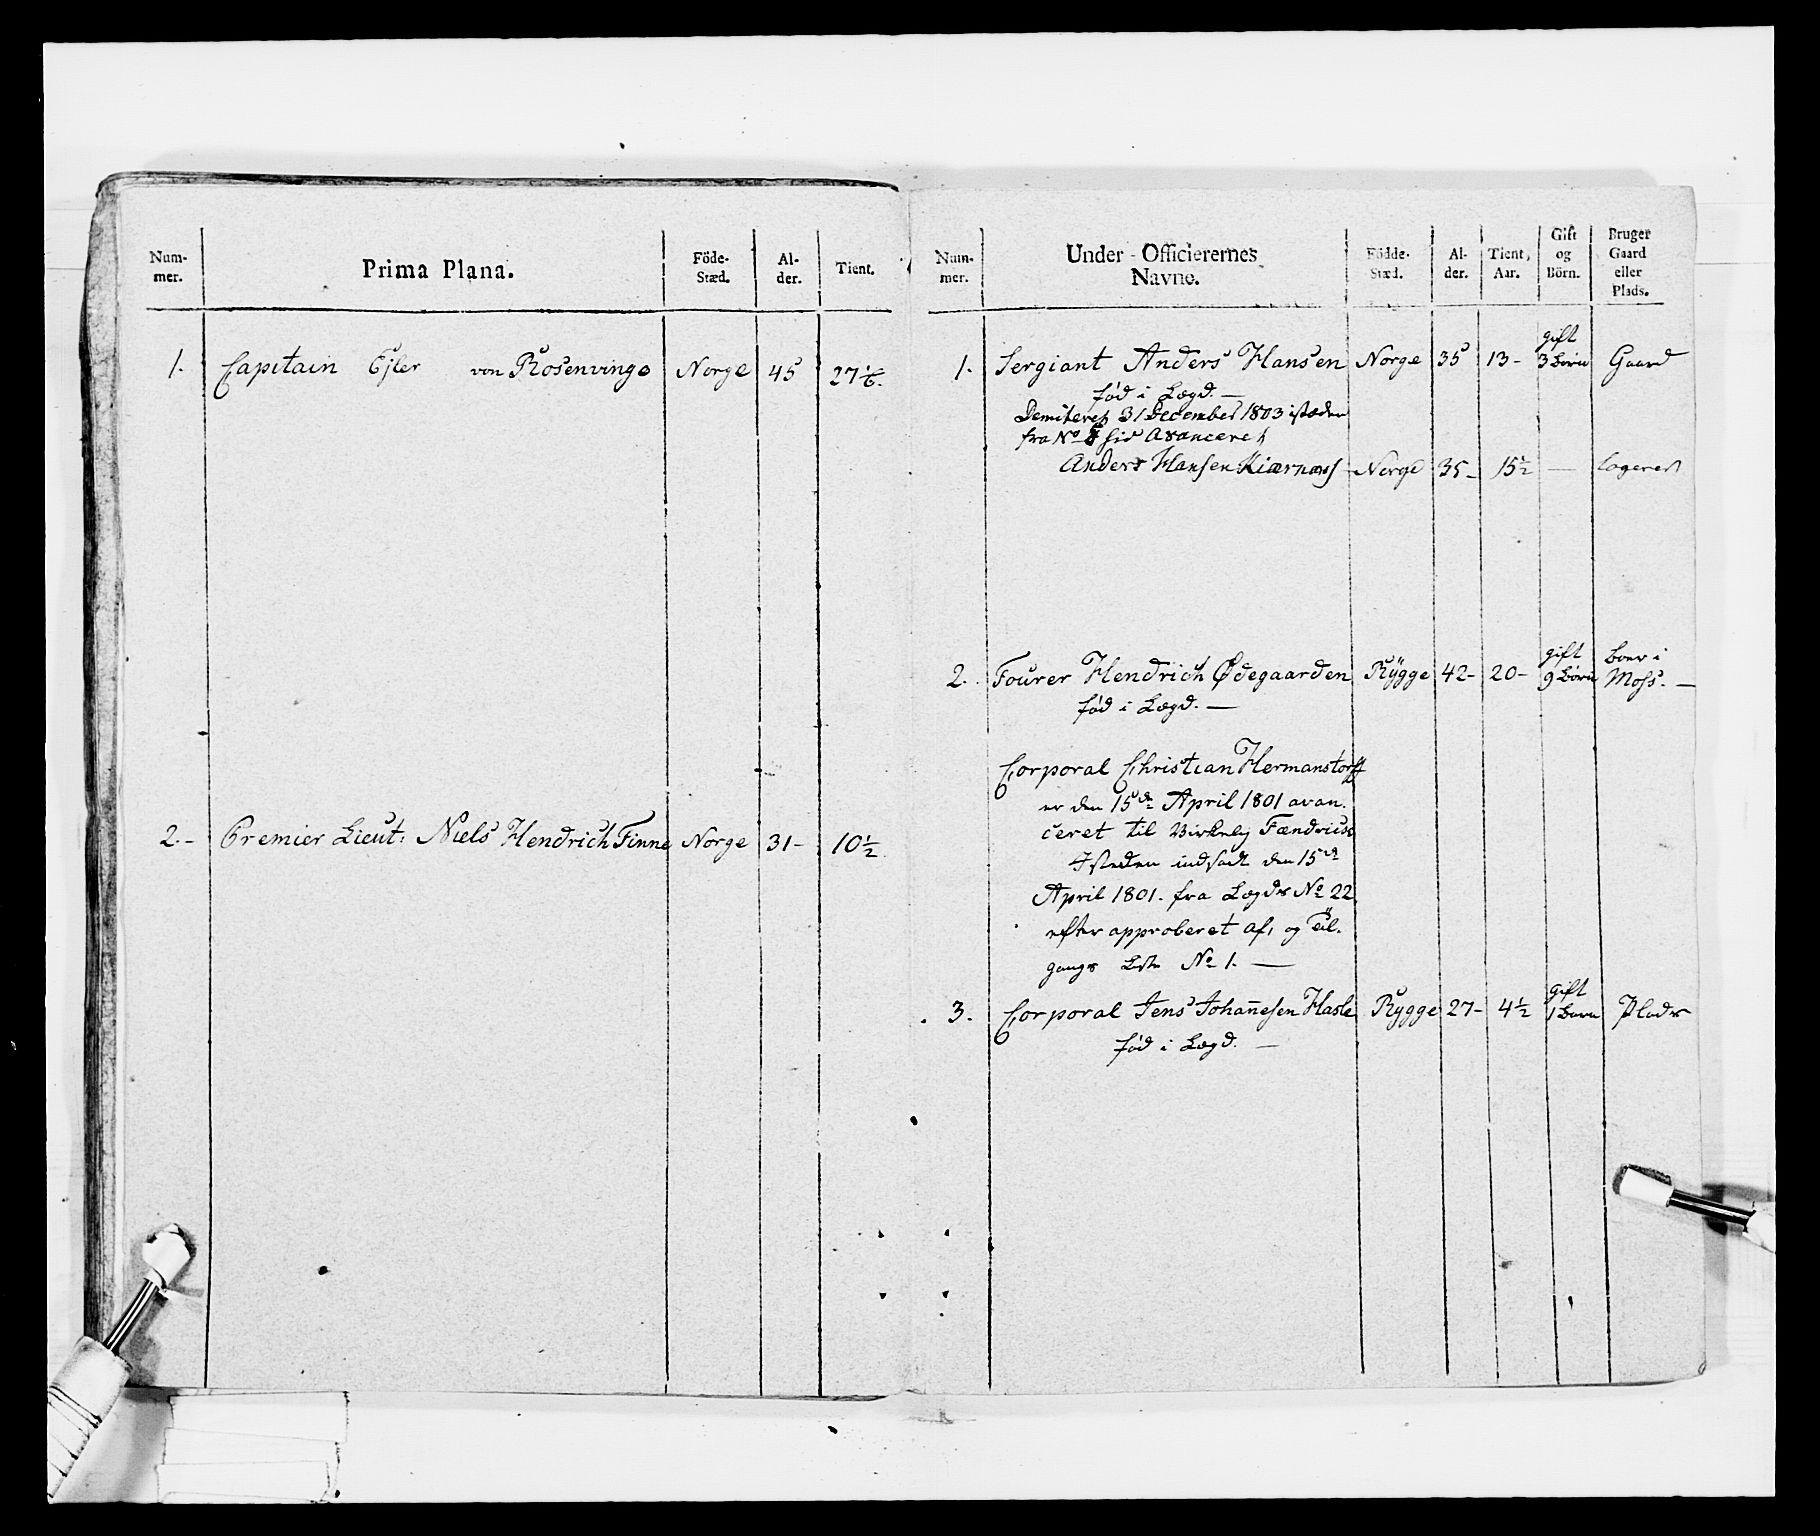 Num-
mer.
Prima Plana.
Föde-
Stæd.
Al-
der.
Tient.
1. Capitain Ejler von Rosenvinge Norge 45 27
2.- Premier Lieut: Niels Hendrich Finne Norge 31- 10½
Num-
mer.
Under-Officierernes
Navne.
Födde-
Stæd.
Al-
der.
Tient
Aar.
Gift
og
Börn.
Bruger
Gaard
eller
Plads.
gift
1. Sergiant Anders Hansen Norge 35 13- 3 børn Gaard
fød i Lægd. —
Demiteret 31 December 1803 istæden
fra No hid Avanceret
Anders Hansen Kiærnæss - Norge 35- 15½ — logeret
gift boer i
2. Fourer Hendrich Ødegaarden Rÿgge 42- 20- 9 børn Moss. —
fød i Lægd. —
Corporal Christian Hermanstorff
er den 15de April 1801 avan-
ceret til Virkelig Fændrich
Isteden indsadt den 15de
April 1801. fra Lægds No 22
efter approberet af, og Til-
gangs Liste No 1. —
gift
3. Corporal Jens Johan̅esen Hasle Rygge 27- 4½ 1 Barn Plads
fød i Lægd. —